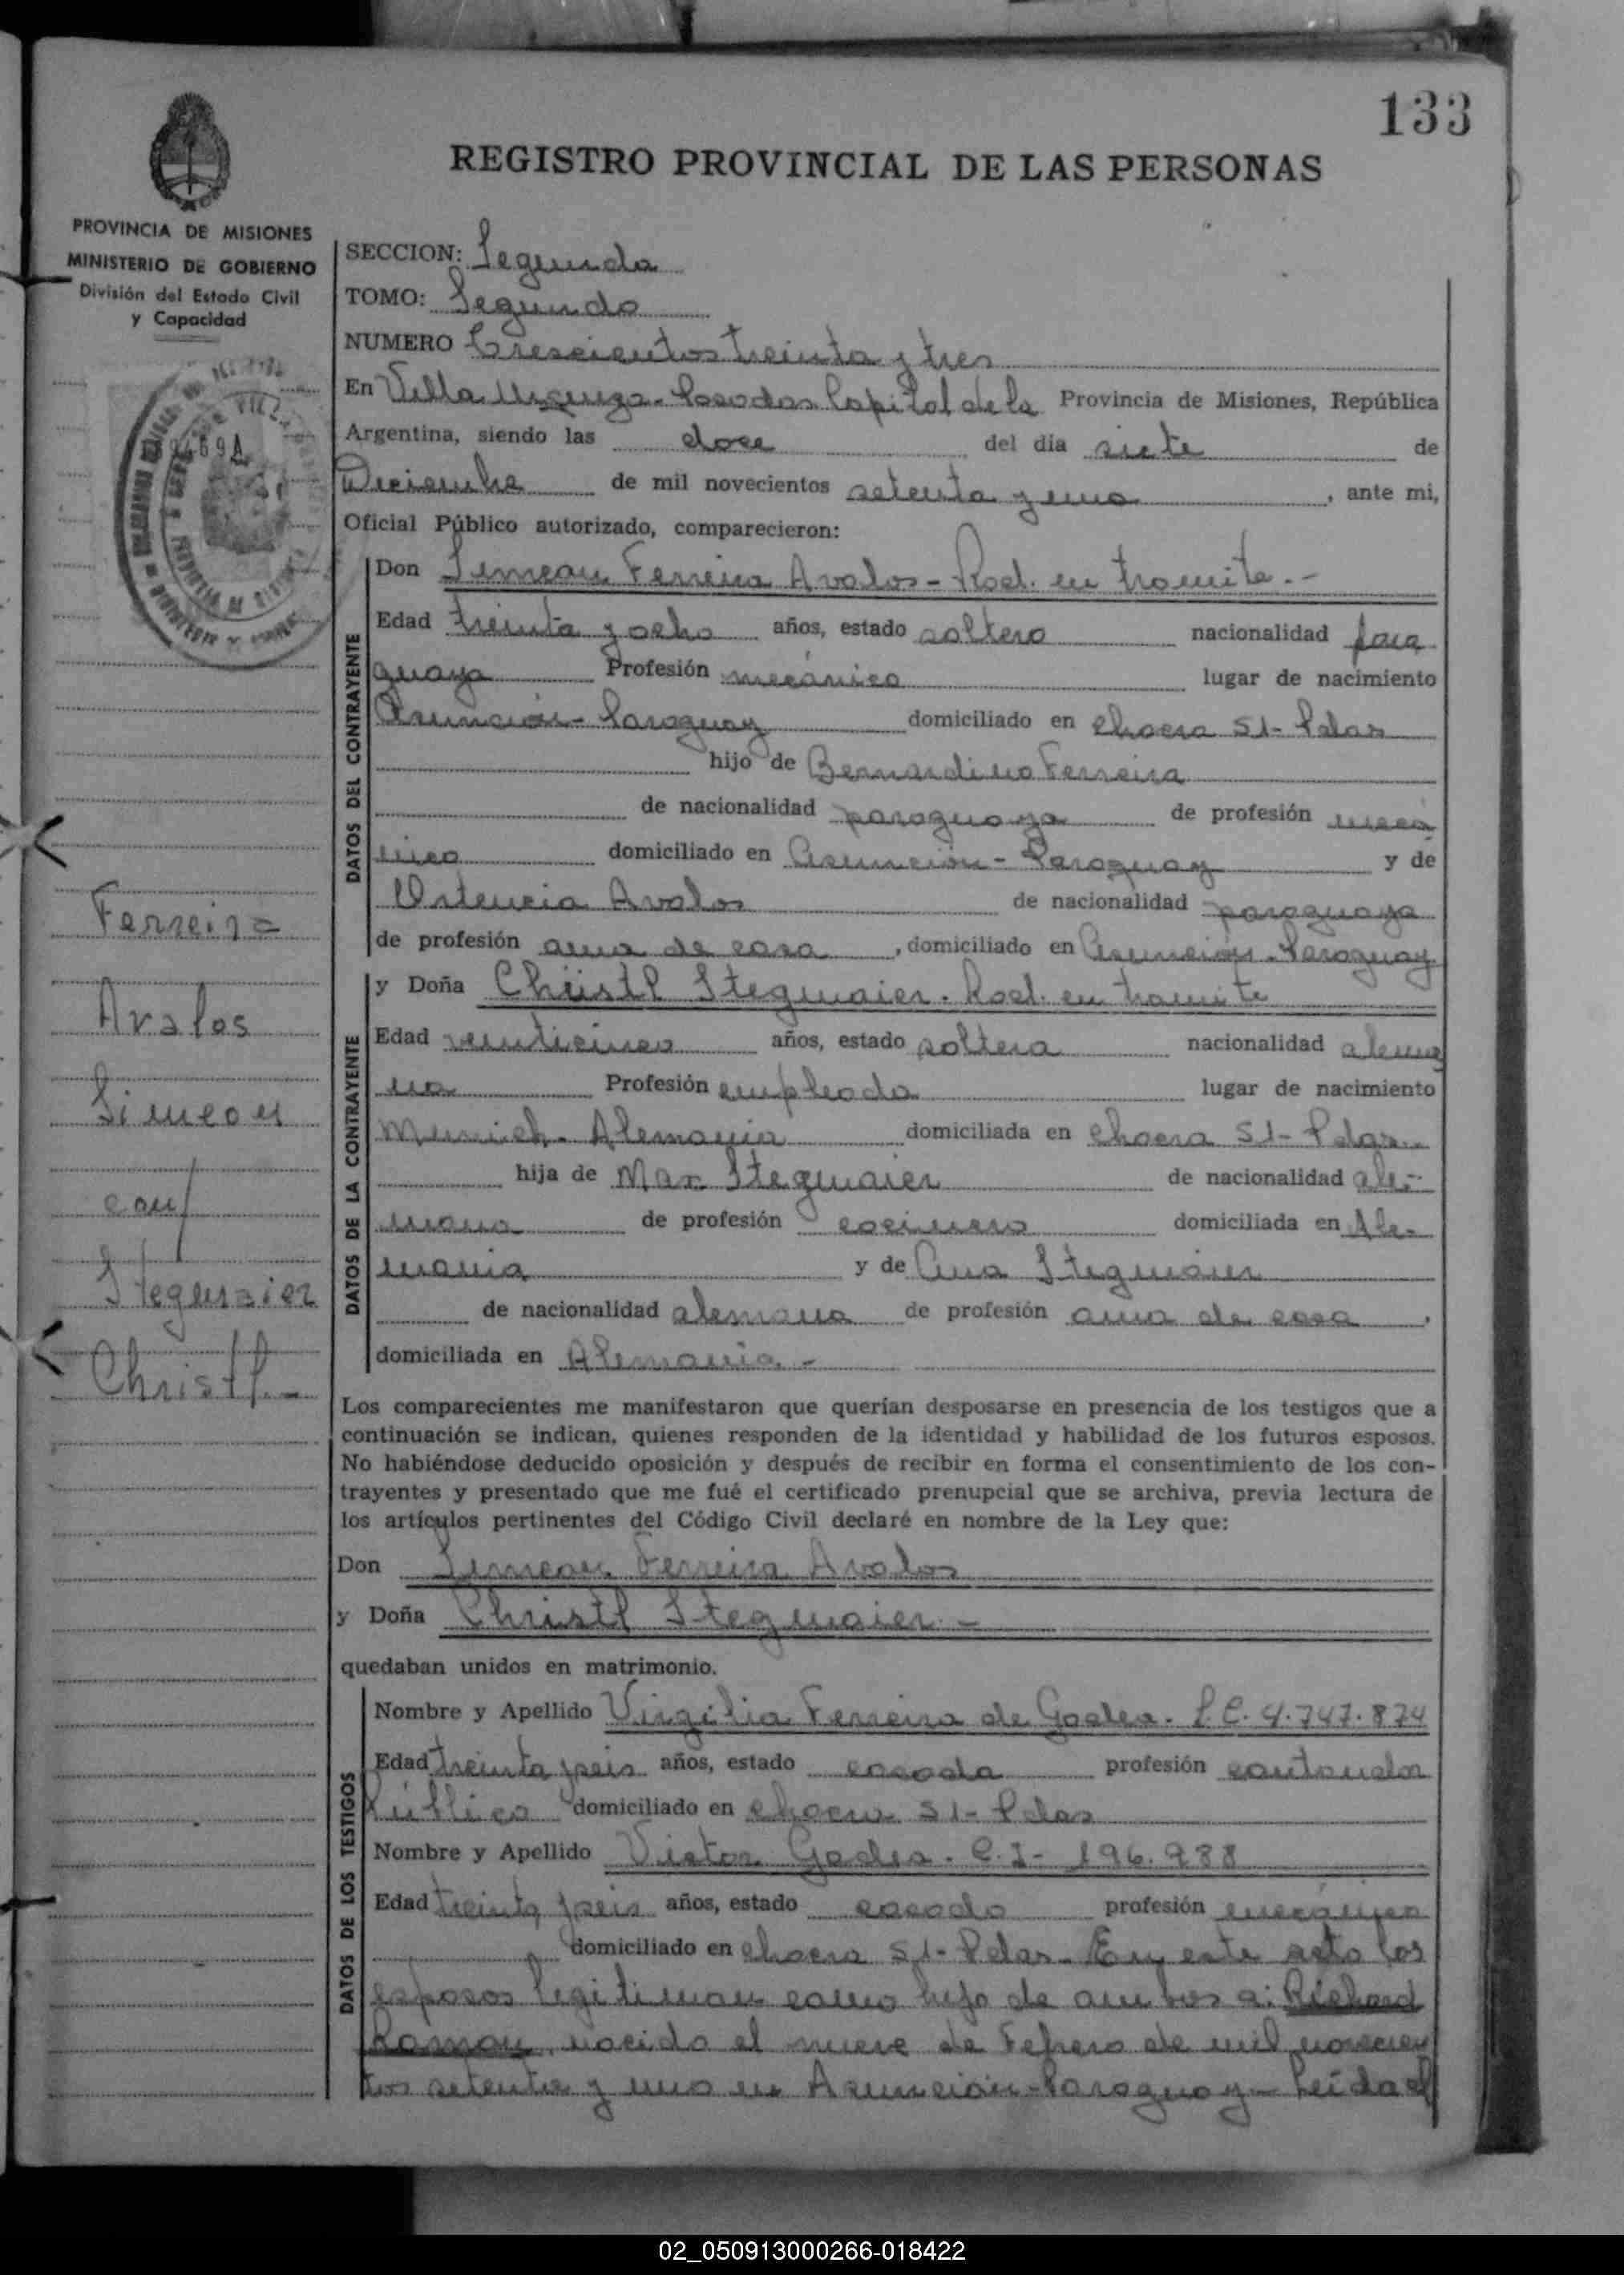 133
REGISTRO PROVINCIAL DE LAS PERSONAS
PROVINCIA DE MISIONES
MINISTERIO DE GOBIERNO
División del Estado Civil
y Capacidad
SECCION: Segunda
TOMO: Segundo
NUMERO Trescientos treinta y tres
En Villa Urquiza - Posadas Capital de la Provincia de Misiones, República
Argentina, siendo las doce del día siete de
Diciembre de mil novecientos setenta y uno, ante mi,
Oficial Público autorizado, comparecieron:
DATOS DEL CONTRAYENTE
Don Simeon Ferreira Avalos - Rad. en tramite. -
Edad treinta y ocho años, estado soltero nacionalidad para
guaya Profesión mecánico lugar de nacimiento
Asunción - Paraguay domiciliado en chacra 51 - Pdas
hijo de Bernardino Ferreira
de nacionalidad paraguaya de profesión mecá
nico domiciliado en Asunción - Paraguay y de
Ortencia Avalos de nacionalidad paraguaya
de profesión ama de casa, domiciliado en Asunción - Paraguay
DATOS DE LA CONTRAYENTE
y Doña Christl Stegmaier. Rad. en tramite
Edad veinticinco años, estado soltera nacionalidad alema
na Profesión empleada lugar de nacimiento
Munich - Alemania domiciliada en chacra 51 - Pdas.
hija de Max Stegmaier de nacionalidad ale-
mana de profesión cocinero domiciliada en Ale-
mania y de Ana Stegmaier
de nacionalidad alemana de profesión ama de casa,
domiciliada en Alemania. -
Los comparecientes me manifestaron que querían desposarse en presencia de los testigos que a
continuación se indican, quienes responden de la identidad y habilidad de los futuros esposos.
No habiéndose deducido oposición y después de recibir en forma el consentimiento de los con-
trayentes y presentado que me fué el certificado prenupcial que se archiva, previa lectura de
los artículos pertinentes del Código Civil declaré en nombre de la Ley que:
Don Simeon Ferreira Avalos
y Doña Christl Stegmaier. -
quedaban unidos en matrimonio.
DATOS DE LOS TESTIGOS
Nombre y Apellido Virgilia Ferreira de L.C. 4.747.874
Edad treinta y seis años, estado casada profesión contador
Público domiciliado en chacra 51 - Pdas
Nombre y Apellido Victor C.I - 196.938
Edad treinta y seis años, estado casado profesión mecánico
domiciliado en chacra 51 - Pdas - En este acto los
esposos legitiman como hijo de ambos a: Richard
Ramon, nacido el nueve de Febrero de mil novecien
tos setenta y uno en Asunción - Paraguay - Leída el
Ferreira
Avalos
Simeon
con/
Stegmaier
Christl. -
02_050913000266-018422